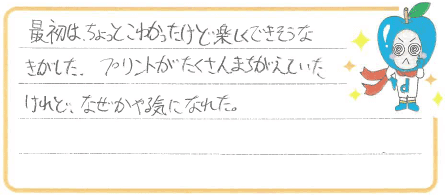 最初は、ちょっとこわかったけど楽しくできそうな
きがした。プリントがたくさんまちがえていた
けれど、なぜかやる気になれた。
d